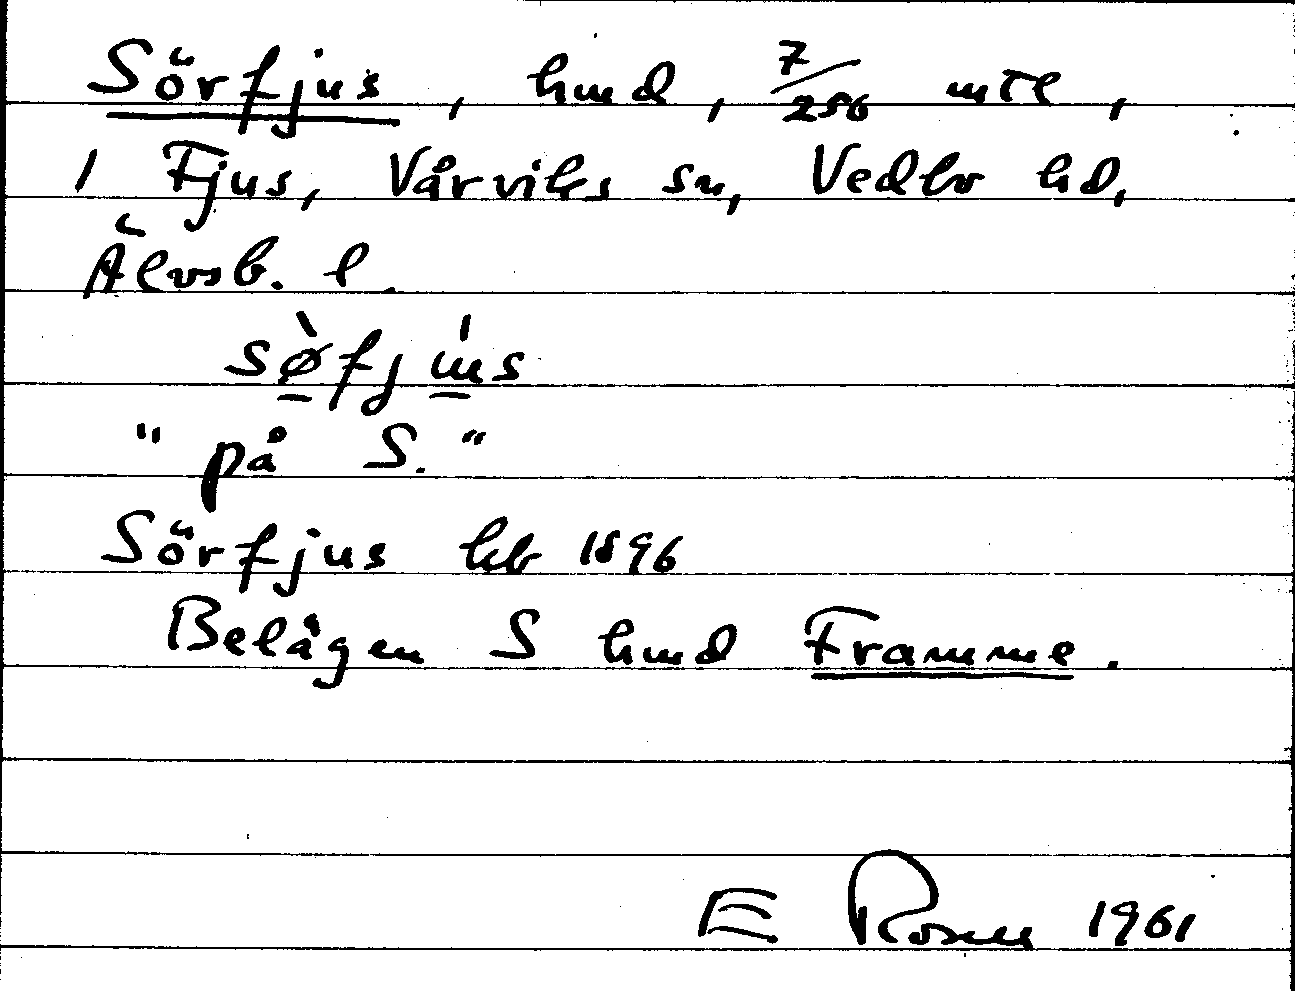 Sörfjus, hmd, 7/256 mtl,
1 Fjus, Vårviks sn, Vedbo hd,
Älvsb. l.
sø̀fjʉ́s
"på S."
Sörfjus kb 1896
Belägen S hmd Framme.
E 1961